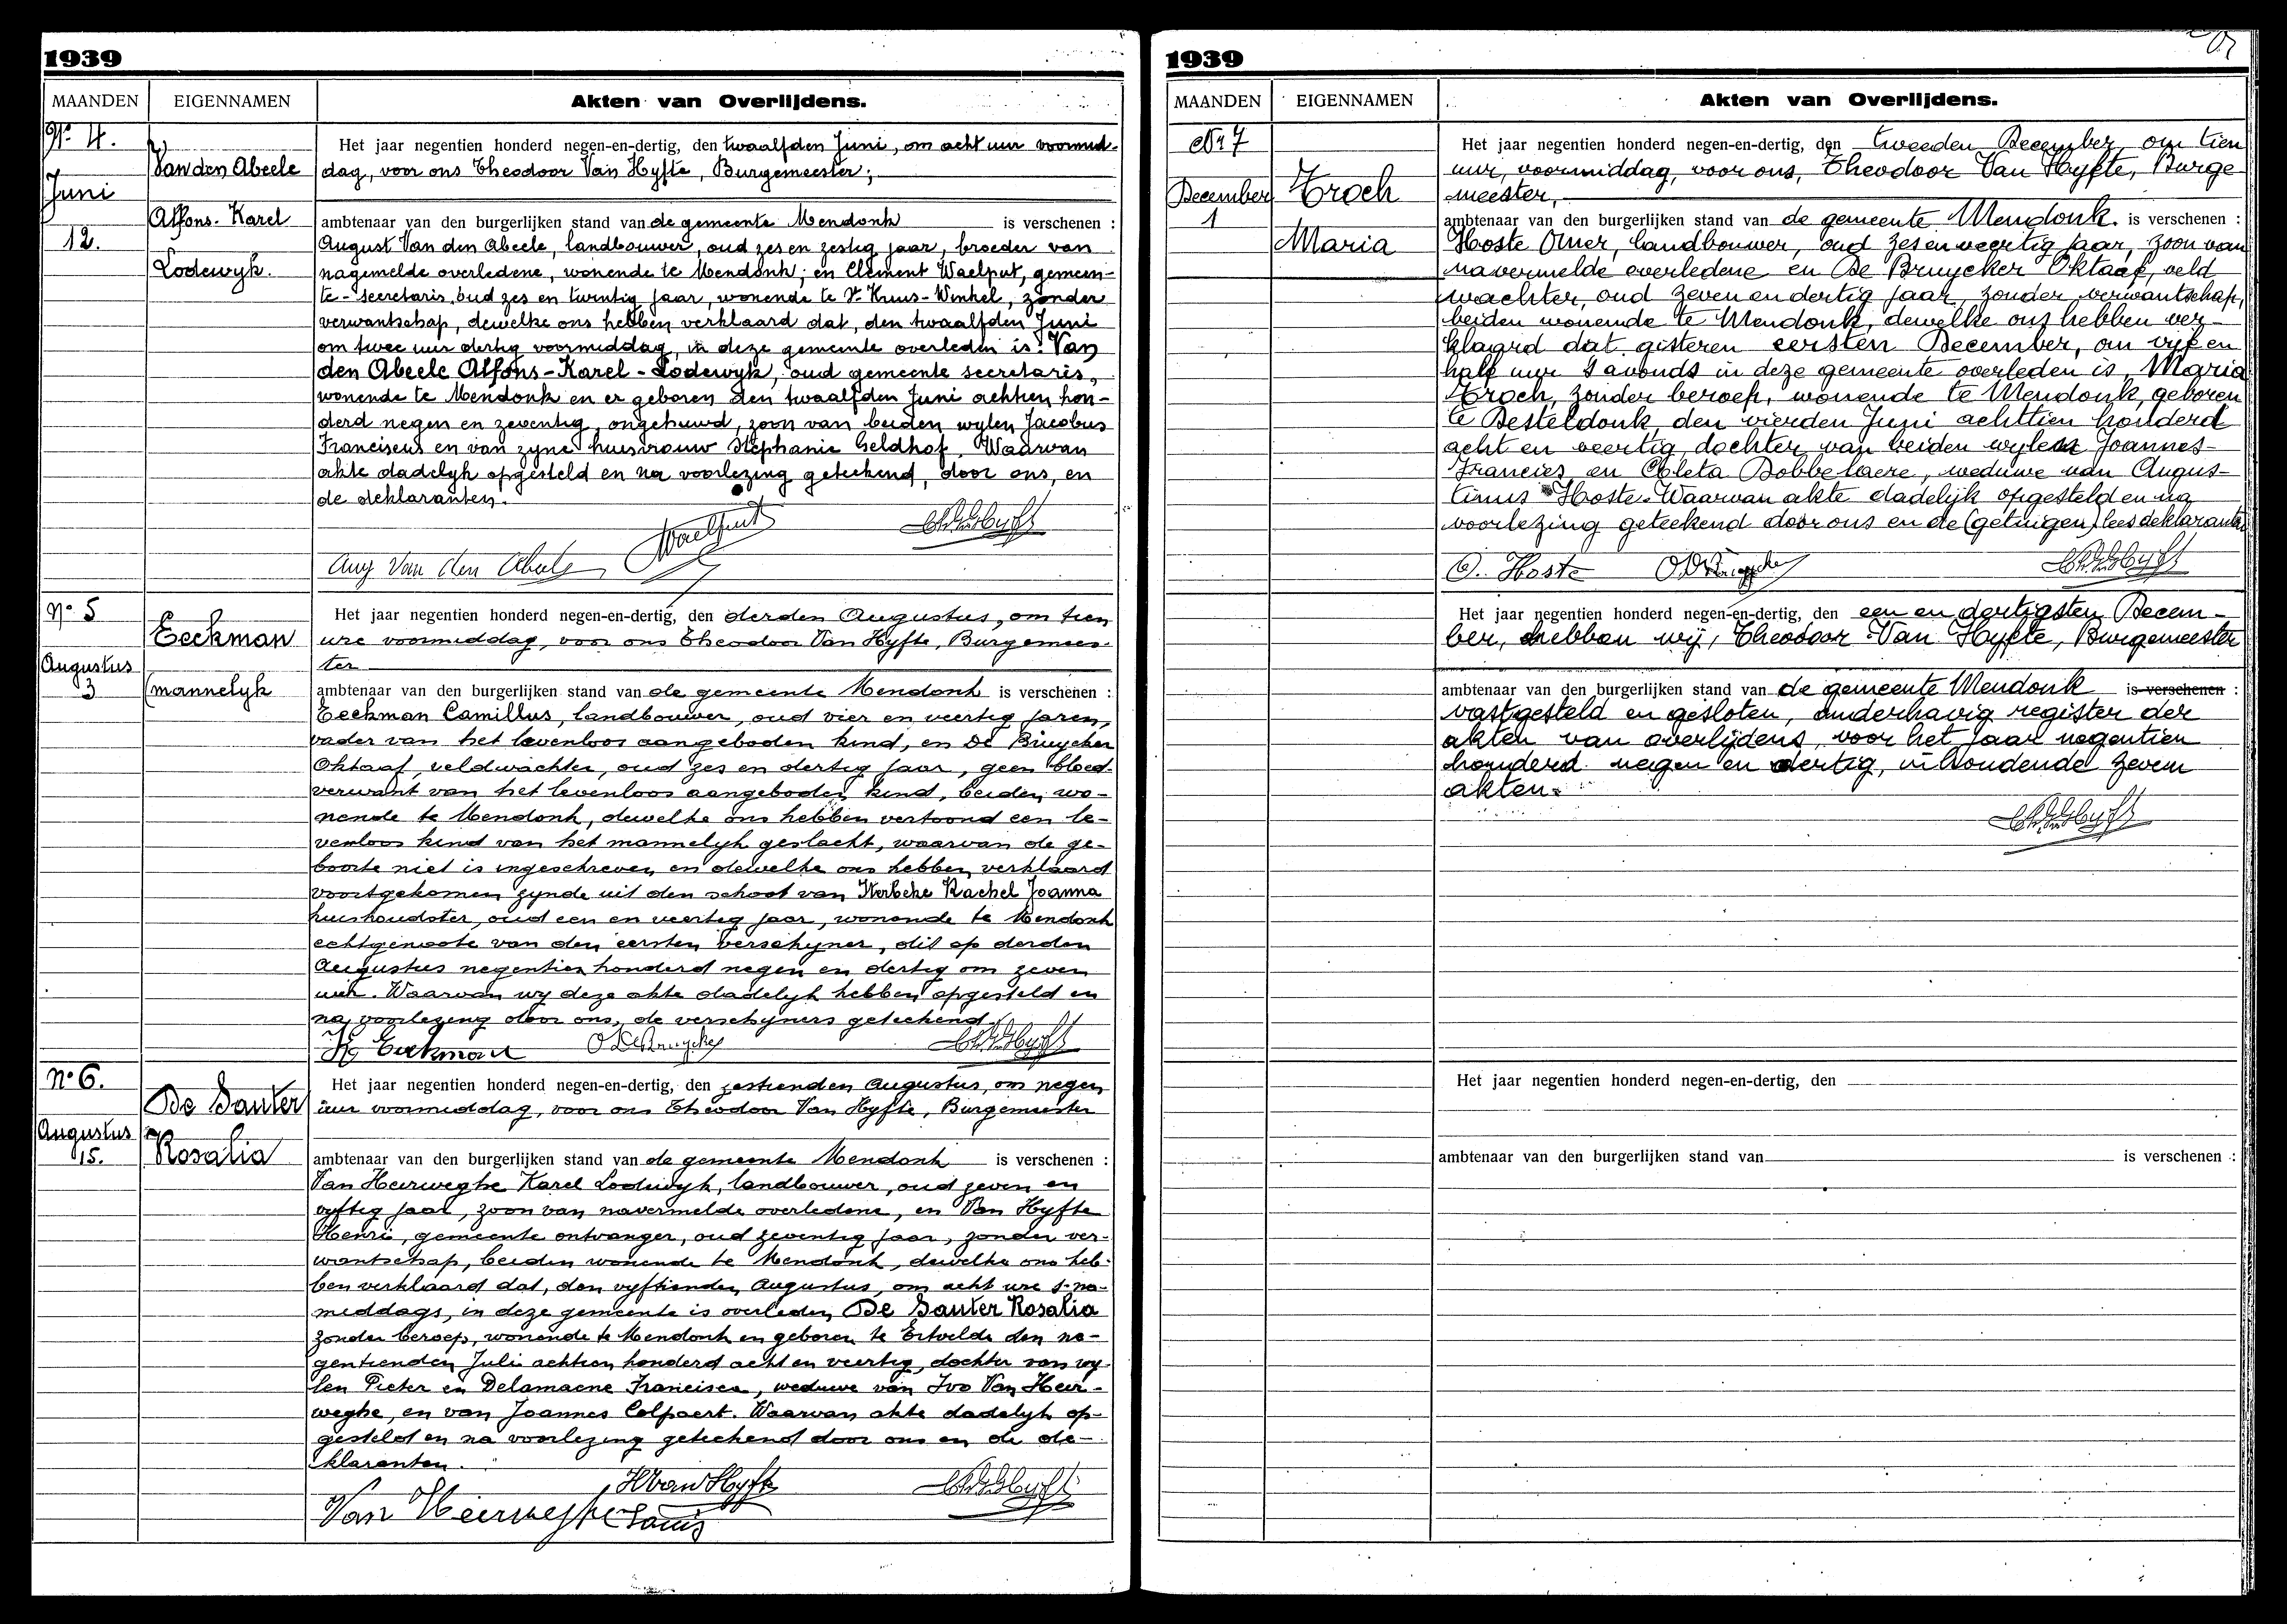 1939
MAANDEN EIGENNAMEN Akten van Overlijdens.
Nr. 4.
Juni
12.
Van den Abeele
Alfons-Karel
Lodewyk.
Het jaar negentien honderd negen-en-dertig, den twaalfden Juni, om acht uur voormid-
dag, voor ons Theodoor Van Hyfte, Burgemeester;
ambtenaar van den burgerlijken stand van de gemeente Mendonk is verschenen :
August Van den Abeele, landbouwer, oud zes en zestig jaar, broeder van
nagemelde overledene, wonende te Mendonk; en Clement Waelput, gemeen-
te-secretaris, oud zes en twintig jaar, wonende te St Kruis-Winkel, zonder
verwantschap, dewelke ons hebben verklaard dat, den twaalfden Juni
om twee uur dertig voormiddag, in deze gemeente overleden is: Van
den Abeele Alfons-Karel-Lodewyk, oud gemeente secretaris,
wonende te Mendonk en er geboren den twaalfden Juni achttien hon-
derd negen en zeventig, ongehuwd, zoon van beiden wylen Jacobus
Franciscus en van zyne huisvrouw Stephanie Geldhof. Waarvan
akte dadelyk opgesteld en na voorlezing geteekend, door ons, en
de deklaranten.
Waelput
Aug Van den Abeele
No 5
Augustus
3
Eeckman
(mannelyk
Het jaar negentien honderd negen-en-dertig, den derden Augustus, om tien
ure voormiddag, voor ons Theodoor Van Hyfte, Burgemees-
ter
ambtenaar van den burgerlijken stand van de gemeente Mendonk is verschenen :
Eeckman Camillus, landbouwer, oud vier en veertig jaren,
vader van het levenloos aangeboden kind, en De Bruycker
Oktaaf, veldwachter, oud zes en dertig jaar, geen bloed-
verwant van het levenloos aangeboden kind, beiden wo-
nende te Mendonk, dewelke ons hebben vertoond een le-
venloos kind van het mannelyk geslacht, waarvan de ge-
boorte niet is ingeschreven en dewelke ons hebben verklaard
voortgekomen zynde uit den schoot van Rachel Joanna
huishoudster, oud een en veertig jaar, wonende te Mendonk
echtgenoote van den eersten verschyner, dit op derden
Augustus negentien honderd negen en dertig om zeven
uur. Waarvan wy deze akte dadelyk hebben opgesteld en
na voorlezing door ons, de verschyners geteekend.
Eeckman O De Bruycker
No 6.
Augustus
15.
De Sauter
Rosalia
Het jaar negentien honderd negen-en-dertig, den zestienden Augustus, om negen
uur voormiddag, voor ons Theodoor Van Hyfte, Burgemeester
ambtenaar van den burgerlijken stand van de gemeente Mendonk is verschenen :
Van Heerweghe Karel Lodewyk, landbouwer, oud zeven en
vyftig jaar, zoon van navermelde overledene, en Van Hyfte
Henri, gemeente ontvanger, oud zeventig jaar, zonder ver-
wantschap, beiden wonende te Mendonk, dewelke ons heb-
ben verklaard dat, den vyftienden Augustus, om acht ure s-na-
middags, in deze gemeente is overleden De Sauter Rosalia
zonder beroep, wonende te Mendonk en geboren te Ertvelde den ne-
gentienden Juli achttien honderd acht en veertig, dochter van wy-
len Pieter en Delamaene Francisca, weduwe van Ivo Van Heer-
weghe, en van Joannes Colpaert. Waarvan akte dadelyk op-
gesteld en na voorlezing geteekend door ons en de de-
klaranten.
H Van Hyfte
Van Heerweghe Louis
1939
MAANDEN EIGENNAMEN Akten van Overlijdens.
Nr 7
December
1
Troch
Maria
Het jaar negentien honderd negen-en-dertig, den tweeden December, om tien
uur, voormiddag, voor ons, Theodoor Van Hyfte, Burge
meester,
ambtenaar van den burgerlijken stand van de gemeente Mendonk. is verschenen :
Hoste Omer, landbouwer, oud zes en veertig jaar, zoon van
navermelde overledene en De Bruycker Oktaaf, veld
wachter, oud zeven en dertig jaar, zonder verwantschap,
beiden wonende te Mendonk, dewelke ons hebben ver-
klaard dat gisteren eersten December, om vijf en
half uur 's avonds in deze gemeente overleden is, Maria
Troch, zonder beroep, wonende te Mendonk, geboren
te Desteldonk, den vierden Juni achttien honderd
acht en veertig, dochter van beiden wylen Joannes-
Francies en Coleta Bobbelaere, weduwe van Augus-
tinus Hoste. Waarvan akte dadelijk opgesteld en na
voorlezing geteekend door ons en de (getuigen) lees deklaranten
O. Hoste O De Bruycker
Het jaar negentien honderd negen-en-dertig, den een en dertigsten Decem-
ber, hebben wij, Theodoor Van Hyfte, Burgemeester
ambtenaar van den burgerlijken stand van de gemeente Mendonk is verschenen :
vastgesteld en gesloten, onderhavig register der
akten van overlijdens, voor het jaar negentien
honderd negen en dertig, inhoudende zeven
akten.
Het jaar negentien honderd negen-en-dertig, den
ambtenaar van den burgerlijken stand van is verschenen :